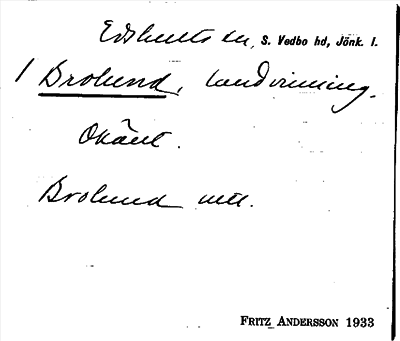 Edshults sn, S. Vedbo hd, Jönk. l.
/ Brolund, landvinning.
Okänt.
Brolund utt.
FRITZ ANDERSSON 1933